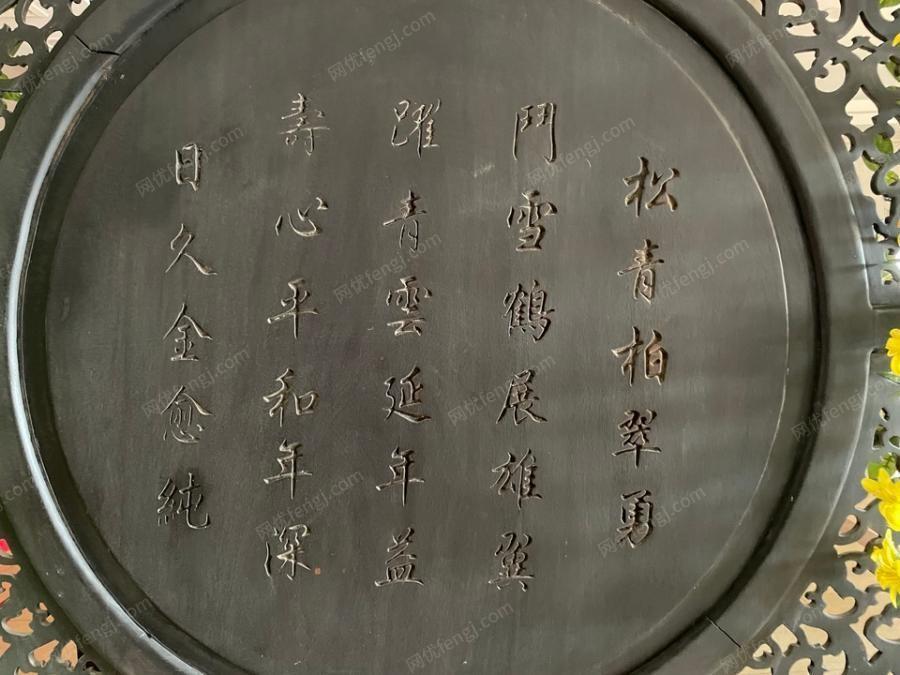 松青柏翠勇
鬥雪鶴展雄翼
躍青雲延年益
壽心平和年深
日久金愈純
网优fengj.com